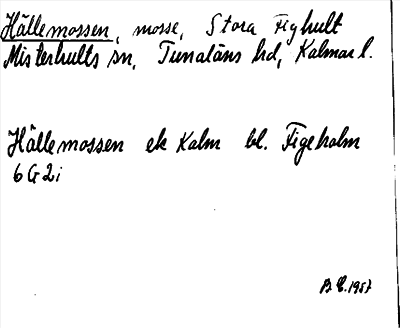 Hällemossen, mosse, Stora Fighult
Misterhults sn, Tunaläns hd, Kalmar l.
Hällemossen ek Kalm bl. Figeholm
6G2i
1957